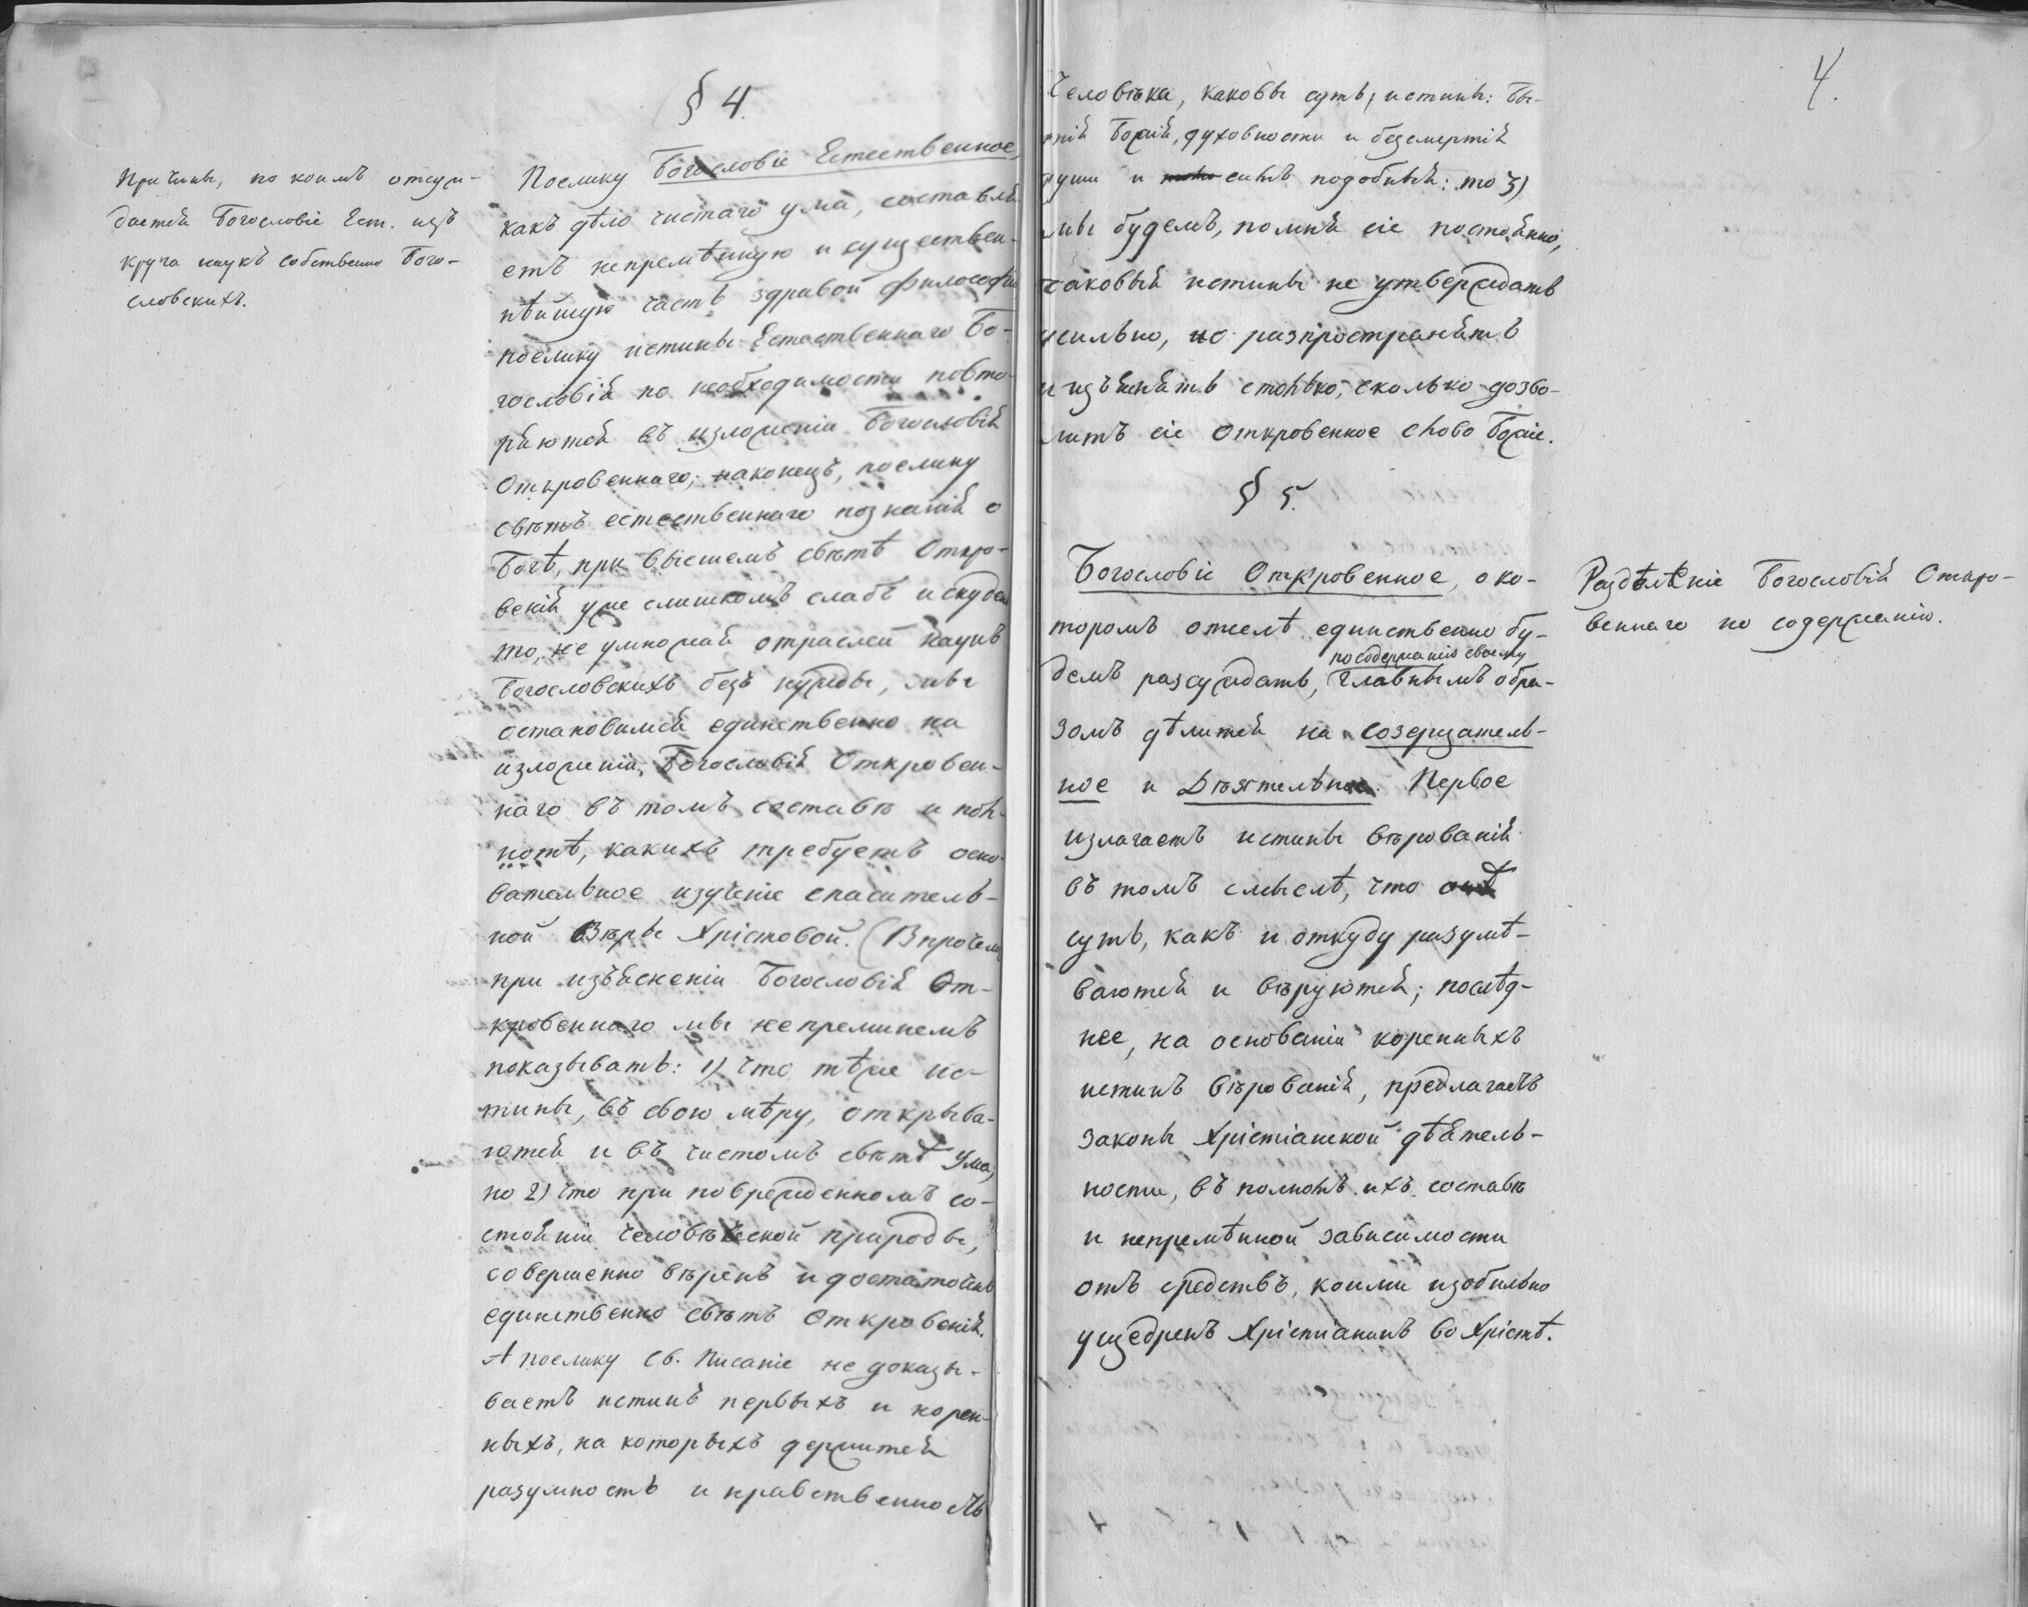 § 4.
Причины, по коимъ отсуж-
дается Богословіе Ест. изъ
круга наукъ собственно Бого-
словскихъ.
Поелику Богословіе Естественное,
какъ дѣло чистаго ума, составля
етъ непремѣнную и существен-
нѣйшую часть здравой философіи
поелику истины Естественнаго Бо-
гословія по необходимости повто-
ряются въ изложеніи Богословія
Откровеннаго; наконецъ, поелику
свѣтъ естественнаго познанія о
Богѣ, при высшемъ свѣтѣ Откро-
венія уже слишкомъ слабъ и скуденъ
то, не умножая отраслей наукъ
Богословскихъ безъ нужды, мы
остановимся единственно на
изложеніи Богословія Откровен-
наго въ томъ составѣ и пол-
нотѣ, какихъ требуетъ осно-
вательное изученіе спаситель-
ной Вѣры Хрістовой. (Впрочемъ
при изъясненіи Богословія От-
кровеннаго мы непреминемъ
показывать: 1) что тѣже ис-
тины, въ свою мѣру, открыва-
ются и въ чистомъ свѣтѣ Ума,
но 2) что при поврежденномъ со-
стояніи человѣческой природы,
совершенно вѣренъ и достаточенъ
единственно свѣтъ Откровенія.
А поелику Св. Писаніе не доказы-
ваетъ истинъ первыхъ и корен-
ныхъ, на которыхъ держится
разумность и нравственность
4.
Человѣка, каковы суть, истины: Бы-
тія Божія, духовности и безсмертія
души и симъ подобныя: то 3)
мы будемъ, помня сіе постоянно,
таковыя истины не утверждать
усильно, но разпространять
и изъяснять столько, сколько дозво-
литъ сіе Откровенное слово Божіе.
§ 5.
Богословіе Откровенное, о ко-
торомъ отселѣ единственно бу-
по содержанію своему
демъ разсуждать, главнымъ обра-
зомъ дѣлится на созерцатель-
ное и Дѣятельное. Первое
излагаетъ истины вѣрованія
въ томъ смыслѣ, что онѣ
суть, какъ и откуду разумѣ-
ваются и вѣруются; послѣд-
нее, на основаніи коренныхъ
истинъ вѣрованія, предлагаетъ
законы Хрістіанской дѣятель-
ности, въ полнотѣ ихъ составѣ
и непремѣнной зависимости
отъ средствъ, коими изобильно
ущедренъ Хрістіанинъ во Хрістѣ.
Раздѣленіе Богословія Откро-
веннаго по содержанію.